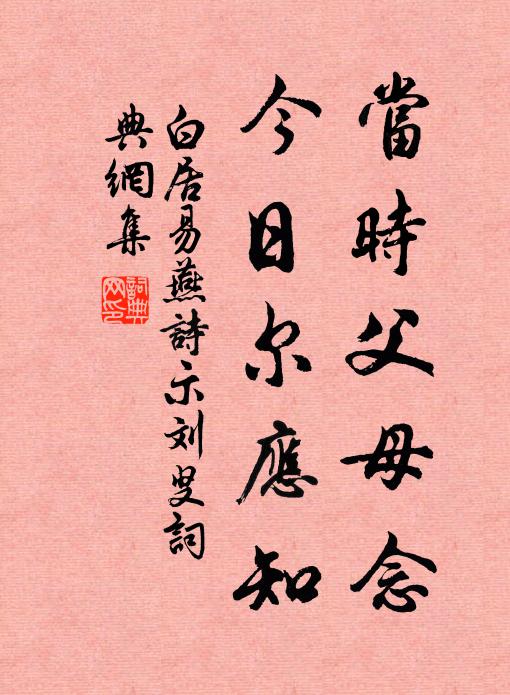 當時父母念
今日尔應知
白居易燕詩示刘叟詞
典網集
詞典
网印